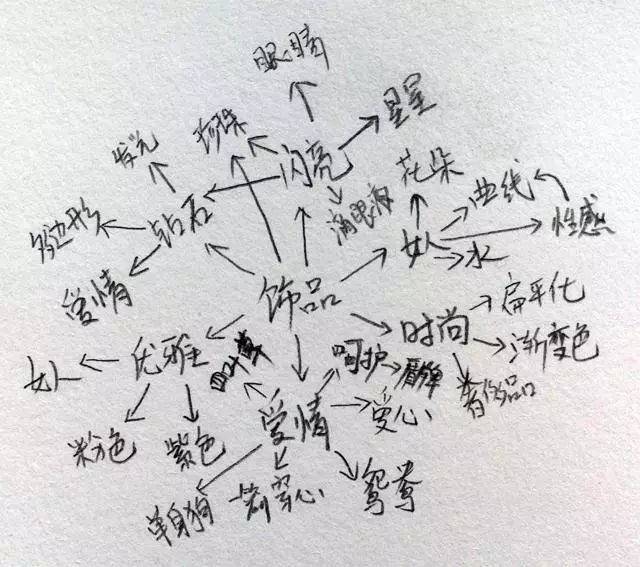 眼睛
星星
珍珠
发光
闪亮
花朵
曲线
滴眼液
钻石
多边形
性感
女人
水
爱情
饰品
扁平化
时尚
渐变色
优雅
女人
四叶草
呵护
奢饰品
爱心
爱情
粉色
紫色
单身狗
箭穿心
鸳鸯